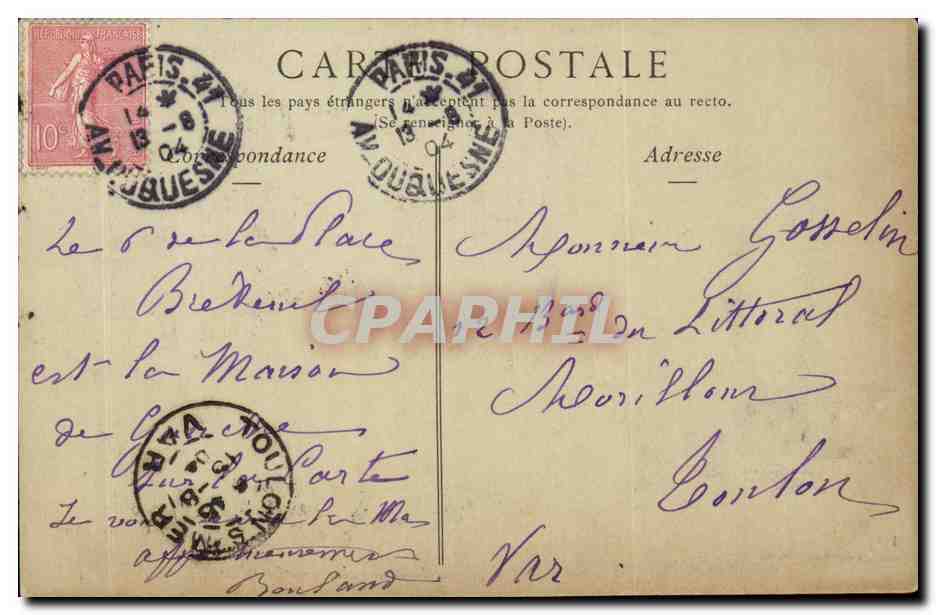 RÉPUBLIQUE FRANÇAISE
10c
PARIS-41
14 * 13 -8 04
AV. DUQUESNE
PARIS-41
14 * 13 -8 04
AV. DUQUESNE
CARTE POSTALE
Tous les pays étrangers n'acceptent pas la correspondance au recto.
(Se renseigner à la Poste).
Correspondance
Adresse
Le 6 de la Place
Breteuil
est la Maison
de
sur la Carte
Je vous
Bouland
Monsieur Gosselin
12 Bard du Littoral
Mourillon
Toulon
Var
TOULON S MER
VAR
CPARHIL